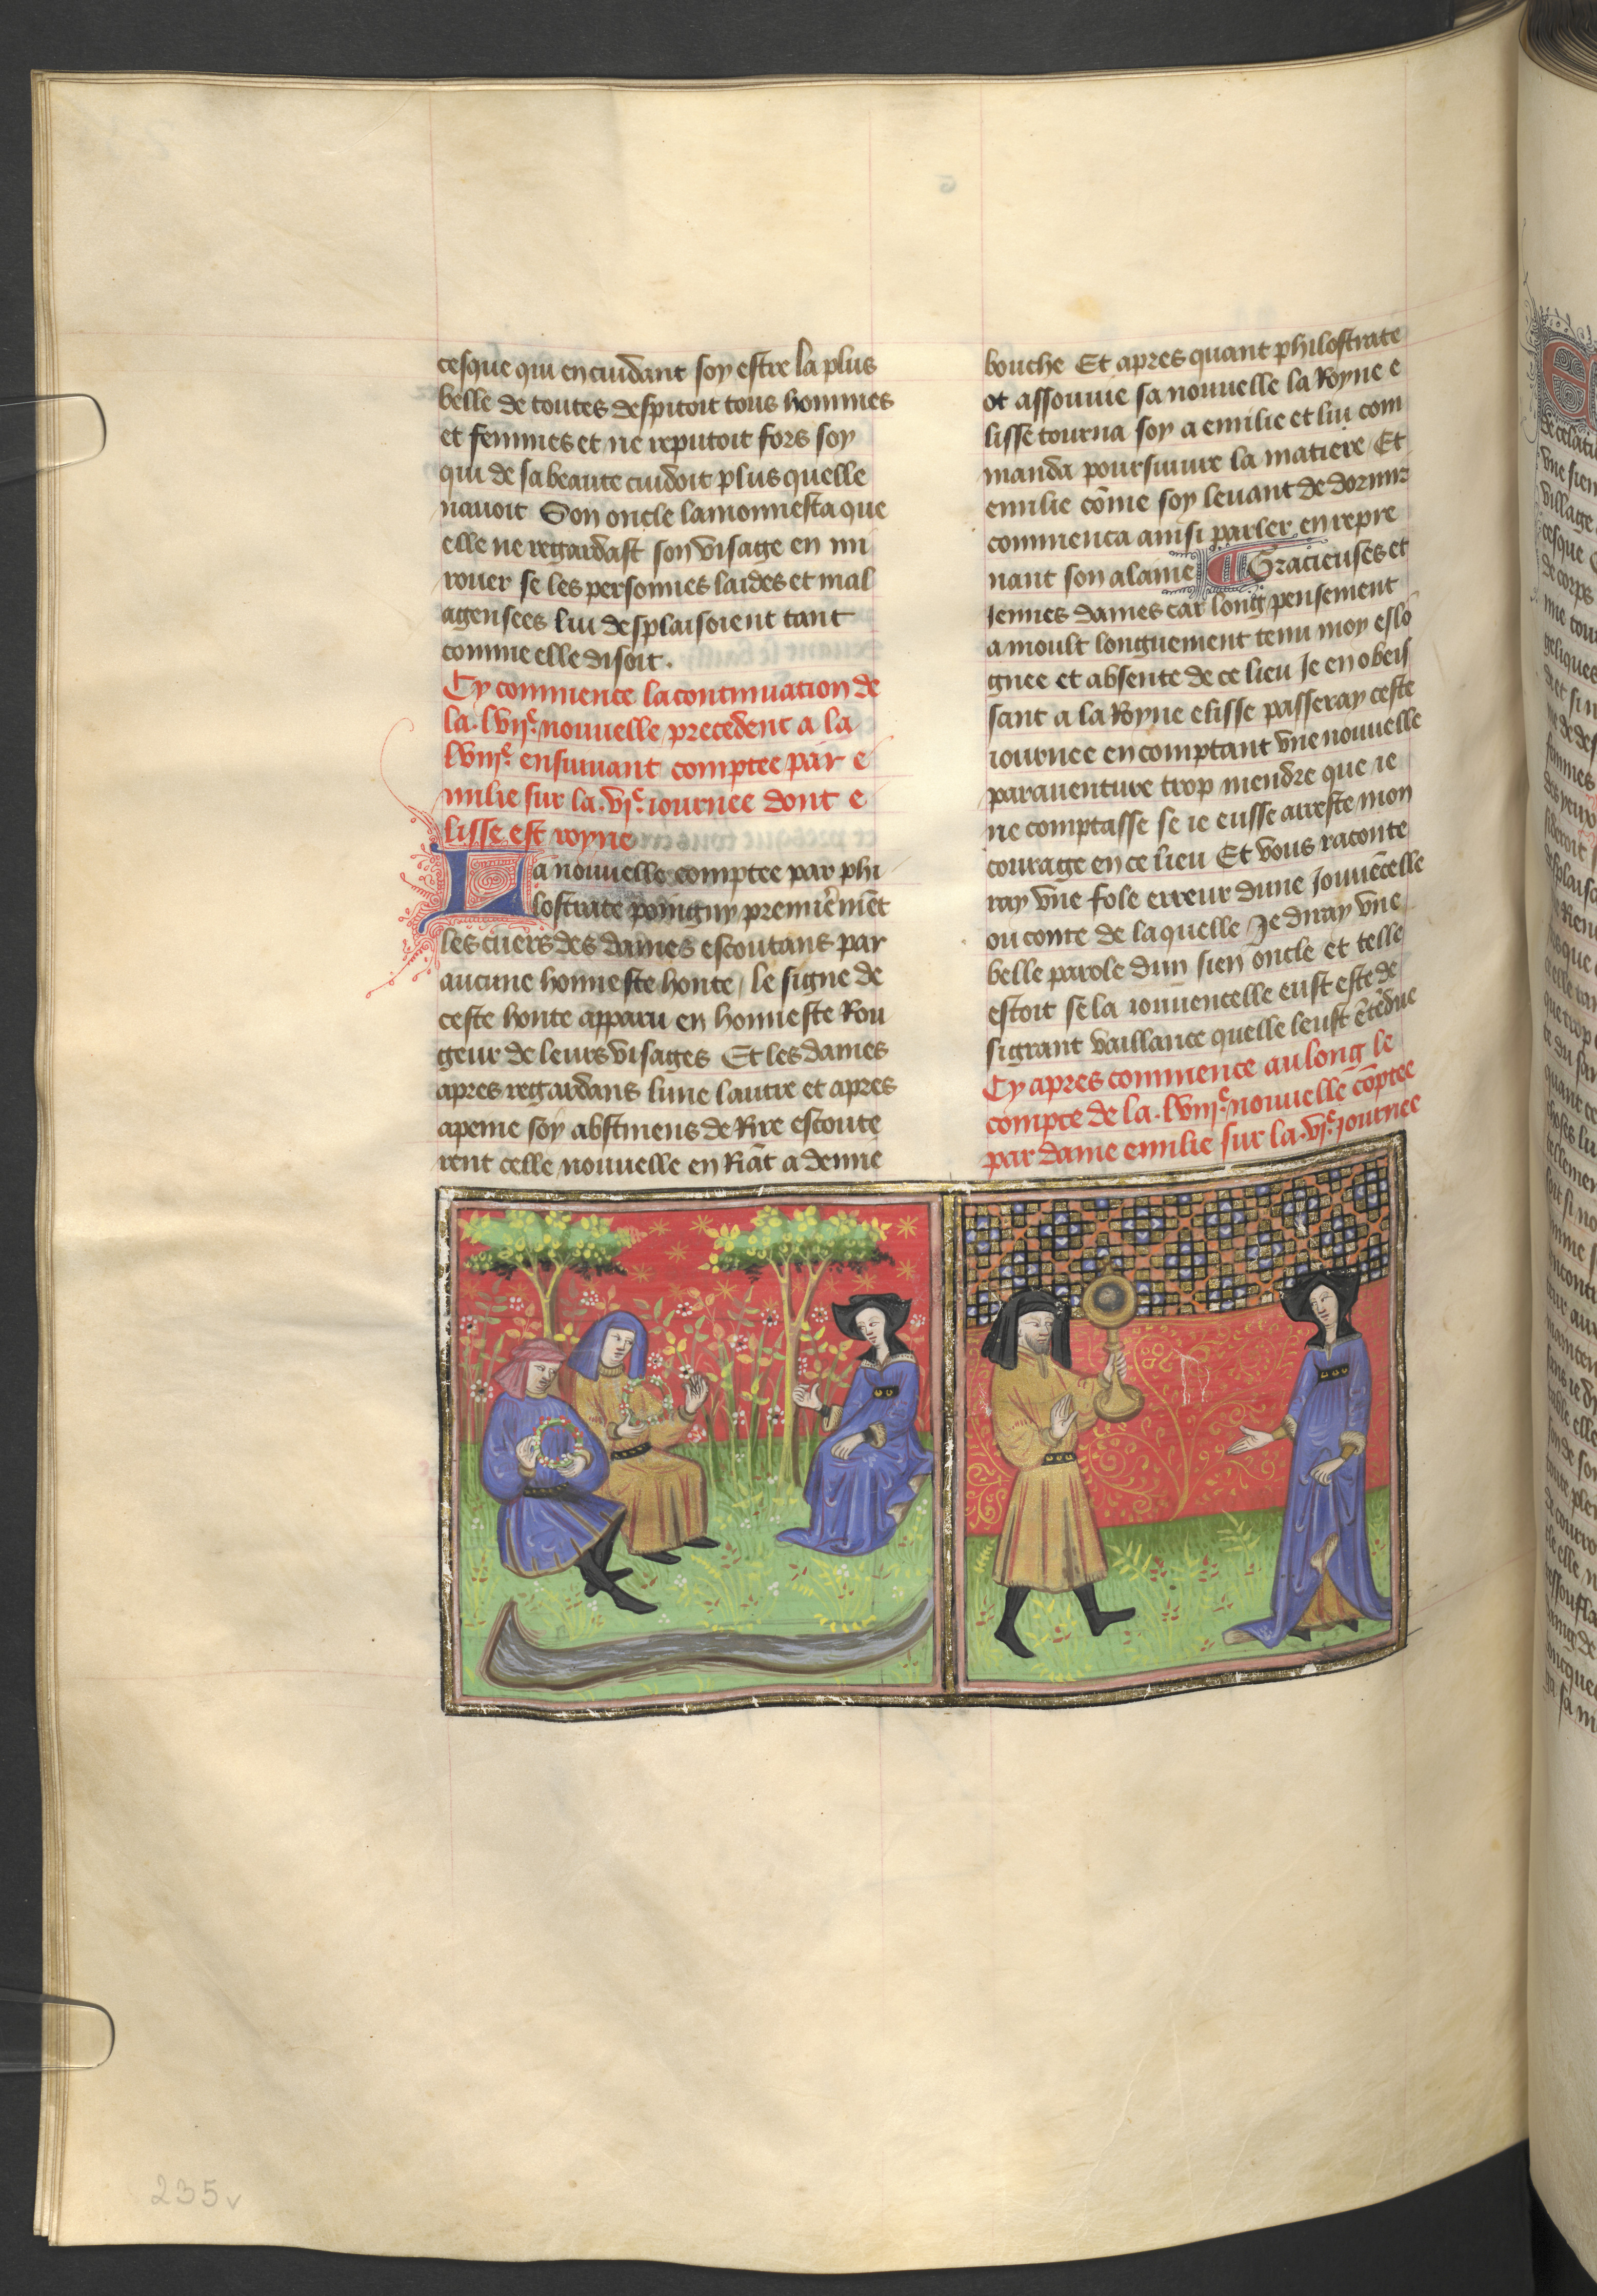 cesque qui en cuidant soy estre la plus
belle de toutes despitoit tous hommes
et femmes et ne reputoit fors soy
qui de sa beaute cuidoit plus quelle
nauoit Son oncle lamonnesta que
elle ne regardast son visage en mi
rouer se les personnes laides et mal
agensees lui desplaisoient tant
comme elle disoit.
Cy commence la continuation de
la .lvije. nouuelle precedent a la
lviije. ensuiuant comptee par e
milie sur la .vje. iournee dont e
lisse est royne
La nouuelle comptee par phi
lostrate poingny premierement
les cuers des dames escoutans par
aucune honneste honte / le signe de
ceste honte apparu en honneste Rou
geur de leurs visages Et les dames
apres regardans lune lautre et apres
apeine soy abstinens de Rire escoute
rent celle nouuelle en Riãt a demie
bouche Et apres quant philostrate
ot assouuie sa nouuelle la Royne e
lisse tourna soy a emilie et lui com
manda poursuiuir la matiere / Et
emilie cõme soy leuant de dormir
commenca ainsi parler en repre
nant son alaine Gracieuses et
iennes dames car long pensement
a moult longuement tenu moy eslo
gnee et absente de ce lieu Je en obeis
sant a la Royne elisse passeray ceste
iournee en comptant vne nouuelle
parauenture trop mendre que ie
ne comptasse se ie eusse arreste mon
courage en ce lieu Et vous raconte
ray vne fole erreur dune Jouuẽcelle
ou conte de laquelle Je diray vne
belle parole dun sien oncle et telle
estoit se la iouuencelle eust este de
si grant vaillance quelle leust ẽtẽdue
Cy apres commence au long le
compte de la .lviije. nouuelle cõptee
par dame emilie sur la .vje. iournee
235v